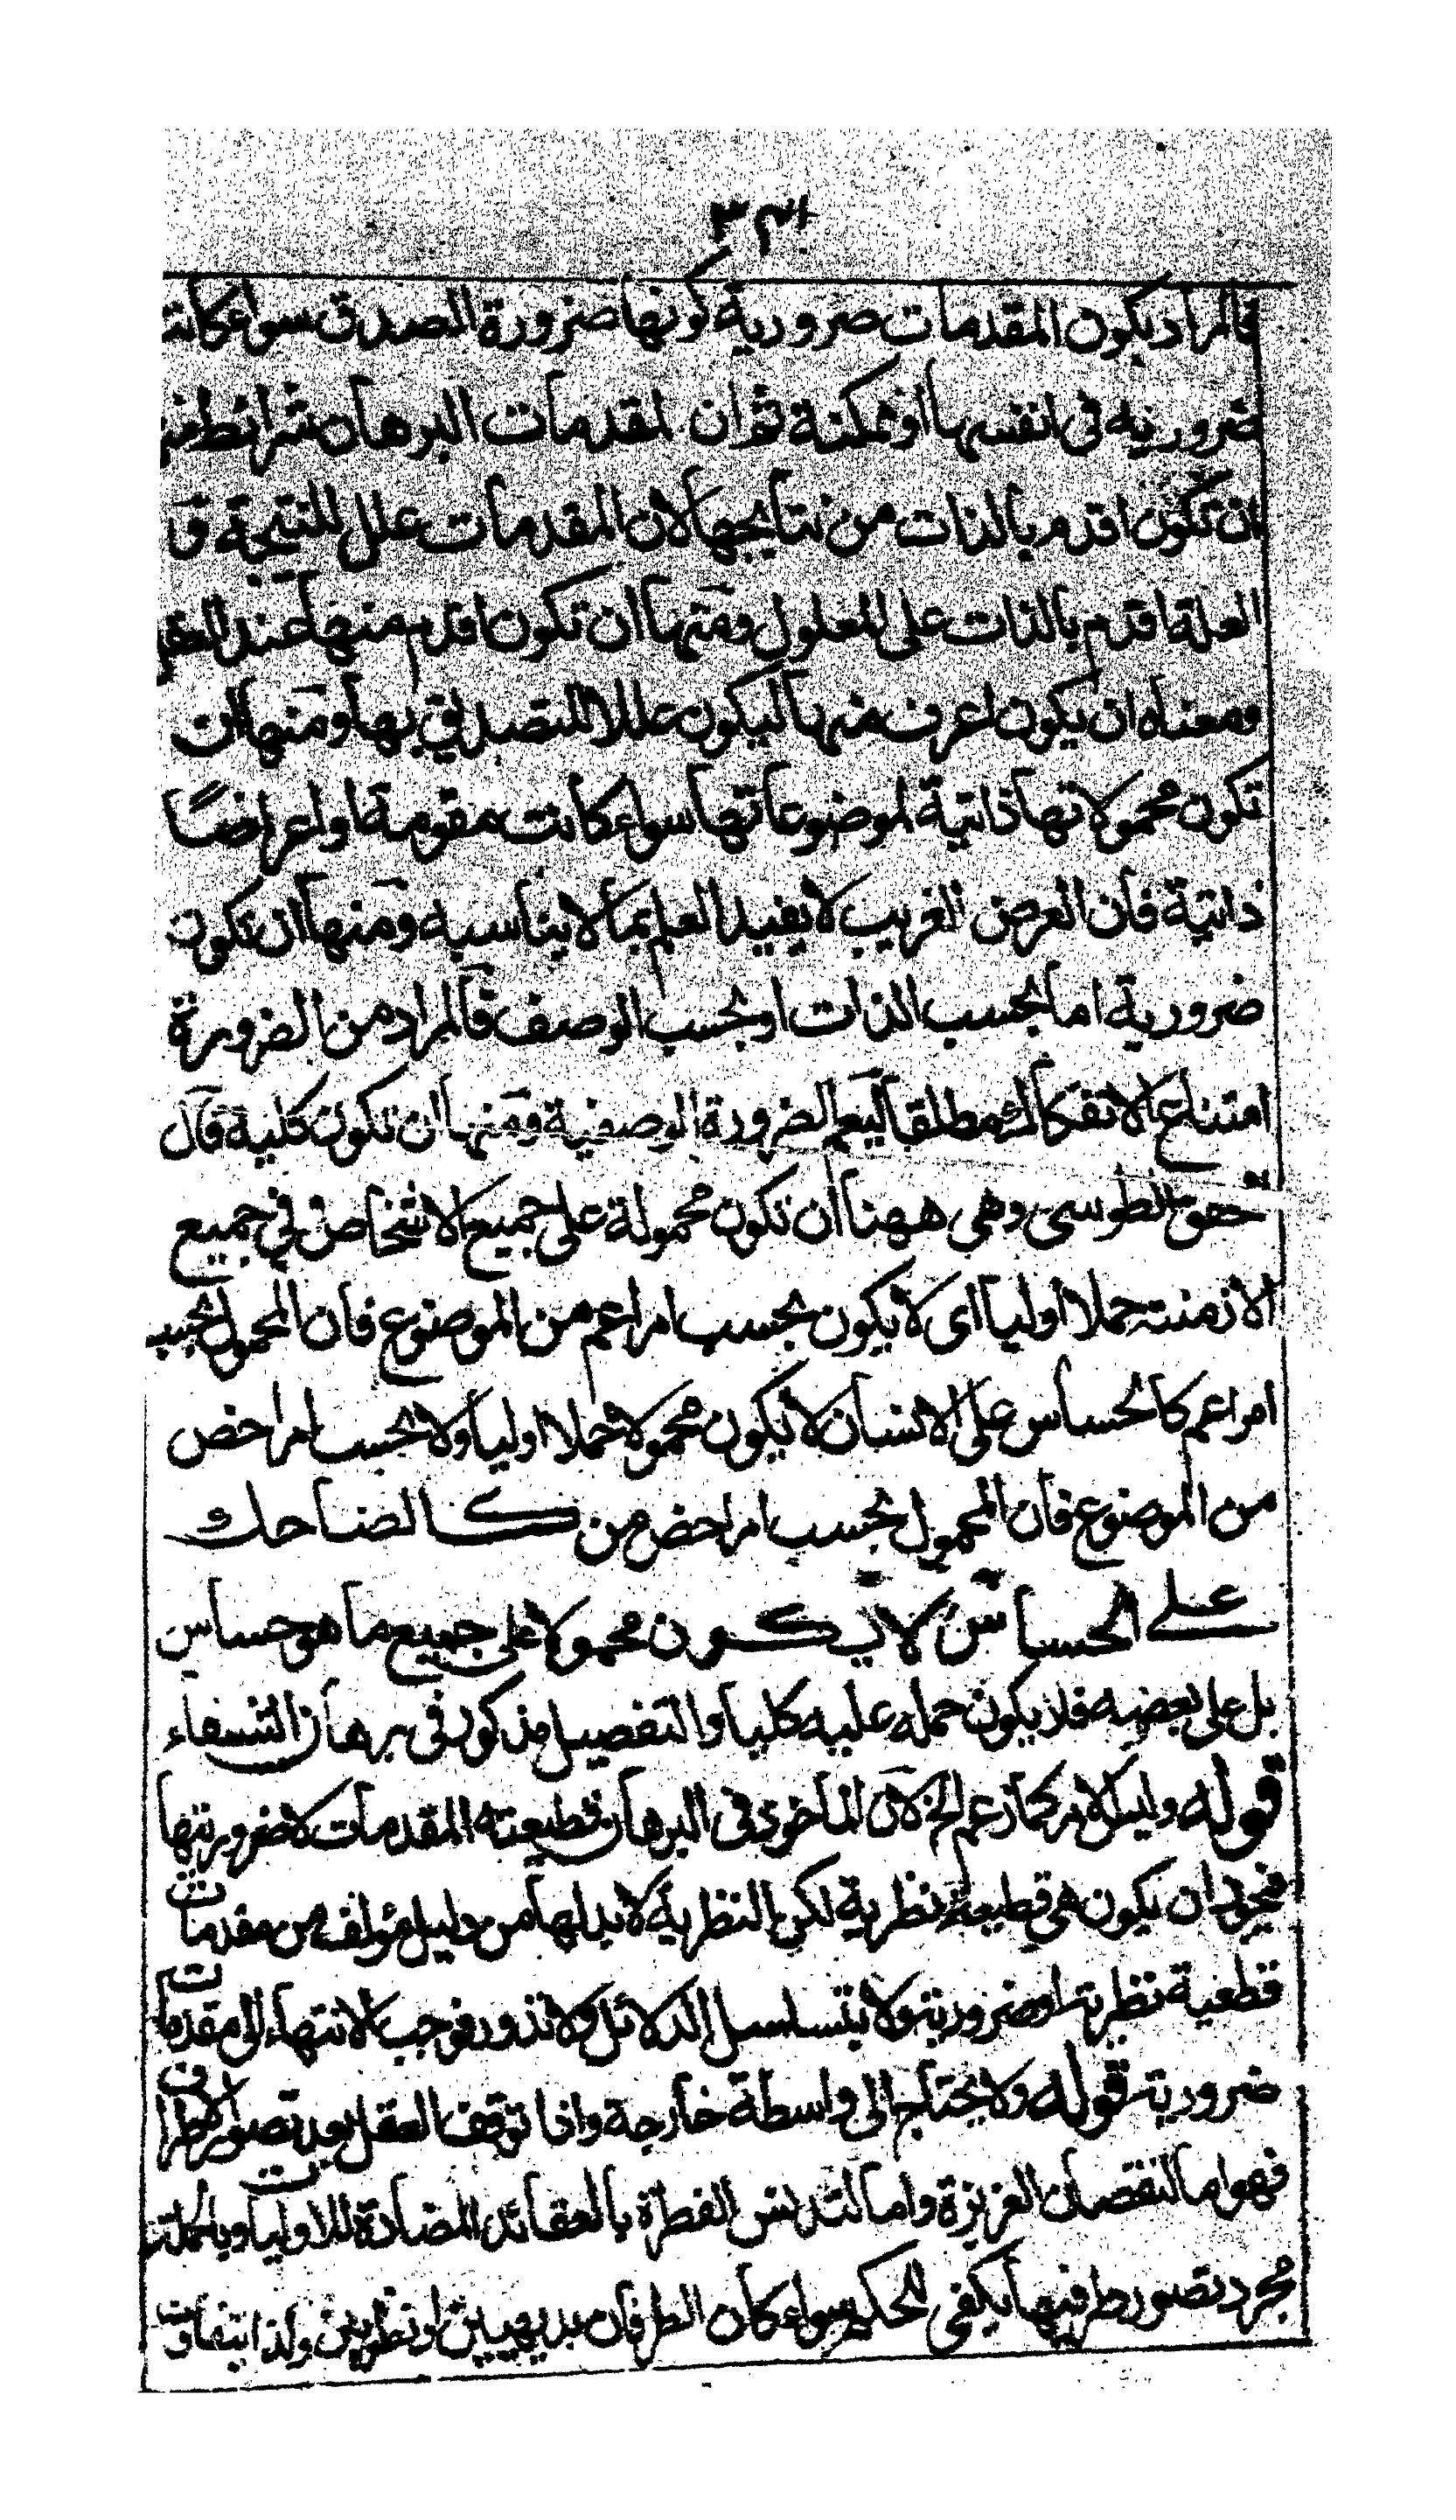 فالمراد بكون المقدمات ضرورية كونها ضرورة الصدق سواء كانت
ضرورية فى انفسها او ممكنة ثم ان لمقدمات البرهان شرائط منها
ان تكون اقدم بالذات من نتايجها لان المقدمات علل للنتيجة و
العلة اقدم بالذات على المعلول ومنها ان تكون اقدم منها عند العقل
ومعناه ان يكون اعرف منها ليكون عللا للتصديق بها ومنها ان
تكون محمولاتها ذاتية لموضوعاتها سواء كانت مقومة او اعراضًا
ذاتية فان العرض الغريب لا يفيد العلم بما لا يناسبه ومنها ان تكون
ضرورية اما بحسب الذات او بحسب الوصف فالمراد من الضرورة
امتناع الانفكاك مطلقا ليعم الضرورة الوصفية ومنها ان تكون كلية قال
المحقق الطوسى وهى ههنا ان تكون محمولة على جميع الاشخاص فى جميع
الازمنة حملا اوليا اى لا يكون بحسب امر اعم من الموضوع فان المحمول بحسب
امر اعم كالحساس على الانسان لا يكون محمولا حملا اوليا ولا بحسب امر اخص
من الموضوع فان المحمول بحسب امر اخص من كالضاحك
على الحساس لا يكون محمولا على جميع ما هو حساس
بل على بعضه فلا يكون حمله عليه كليا والتفصيل مذكور فى برهان الشفاء
قوله وليس الامر كما زعم الخ لان الماخوذ فى البرهان قطيعته المقدمات لا ضروريتها
فيجوز ان يكون هى قطيعة نظرية لكن النظرية لا بد لها من دليل مؤلف من مقدمات
قطعية نظرية او ضرورية ولا يتسلسل الدلائل ولا تدور فوجب الانتهاء الى مقدمات
ضرورية قوله ولا يحتاج الى واسطة خارجة واذا توقف العقل بعد تصور الاطراف
فهو اما لنقصان الغريزة واما لتدنس الفطرة بالعقائد المضادة للاوليات وبالجملة
مجرد تصور طرفيها يكفى للحكم سواء كان الطرفان بديهيين او نظريين ولذا يتفاوت